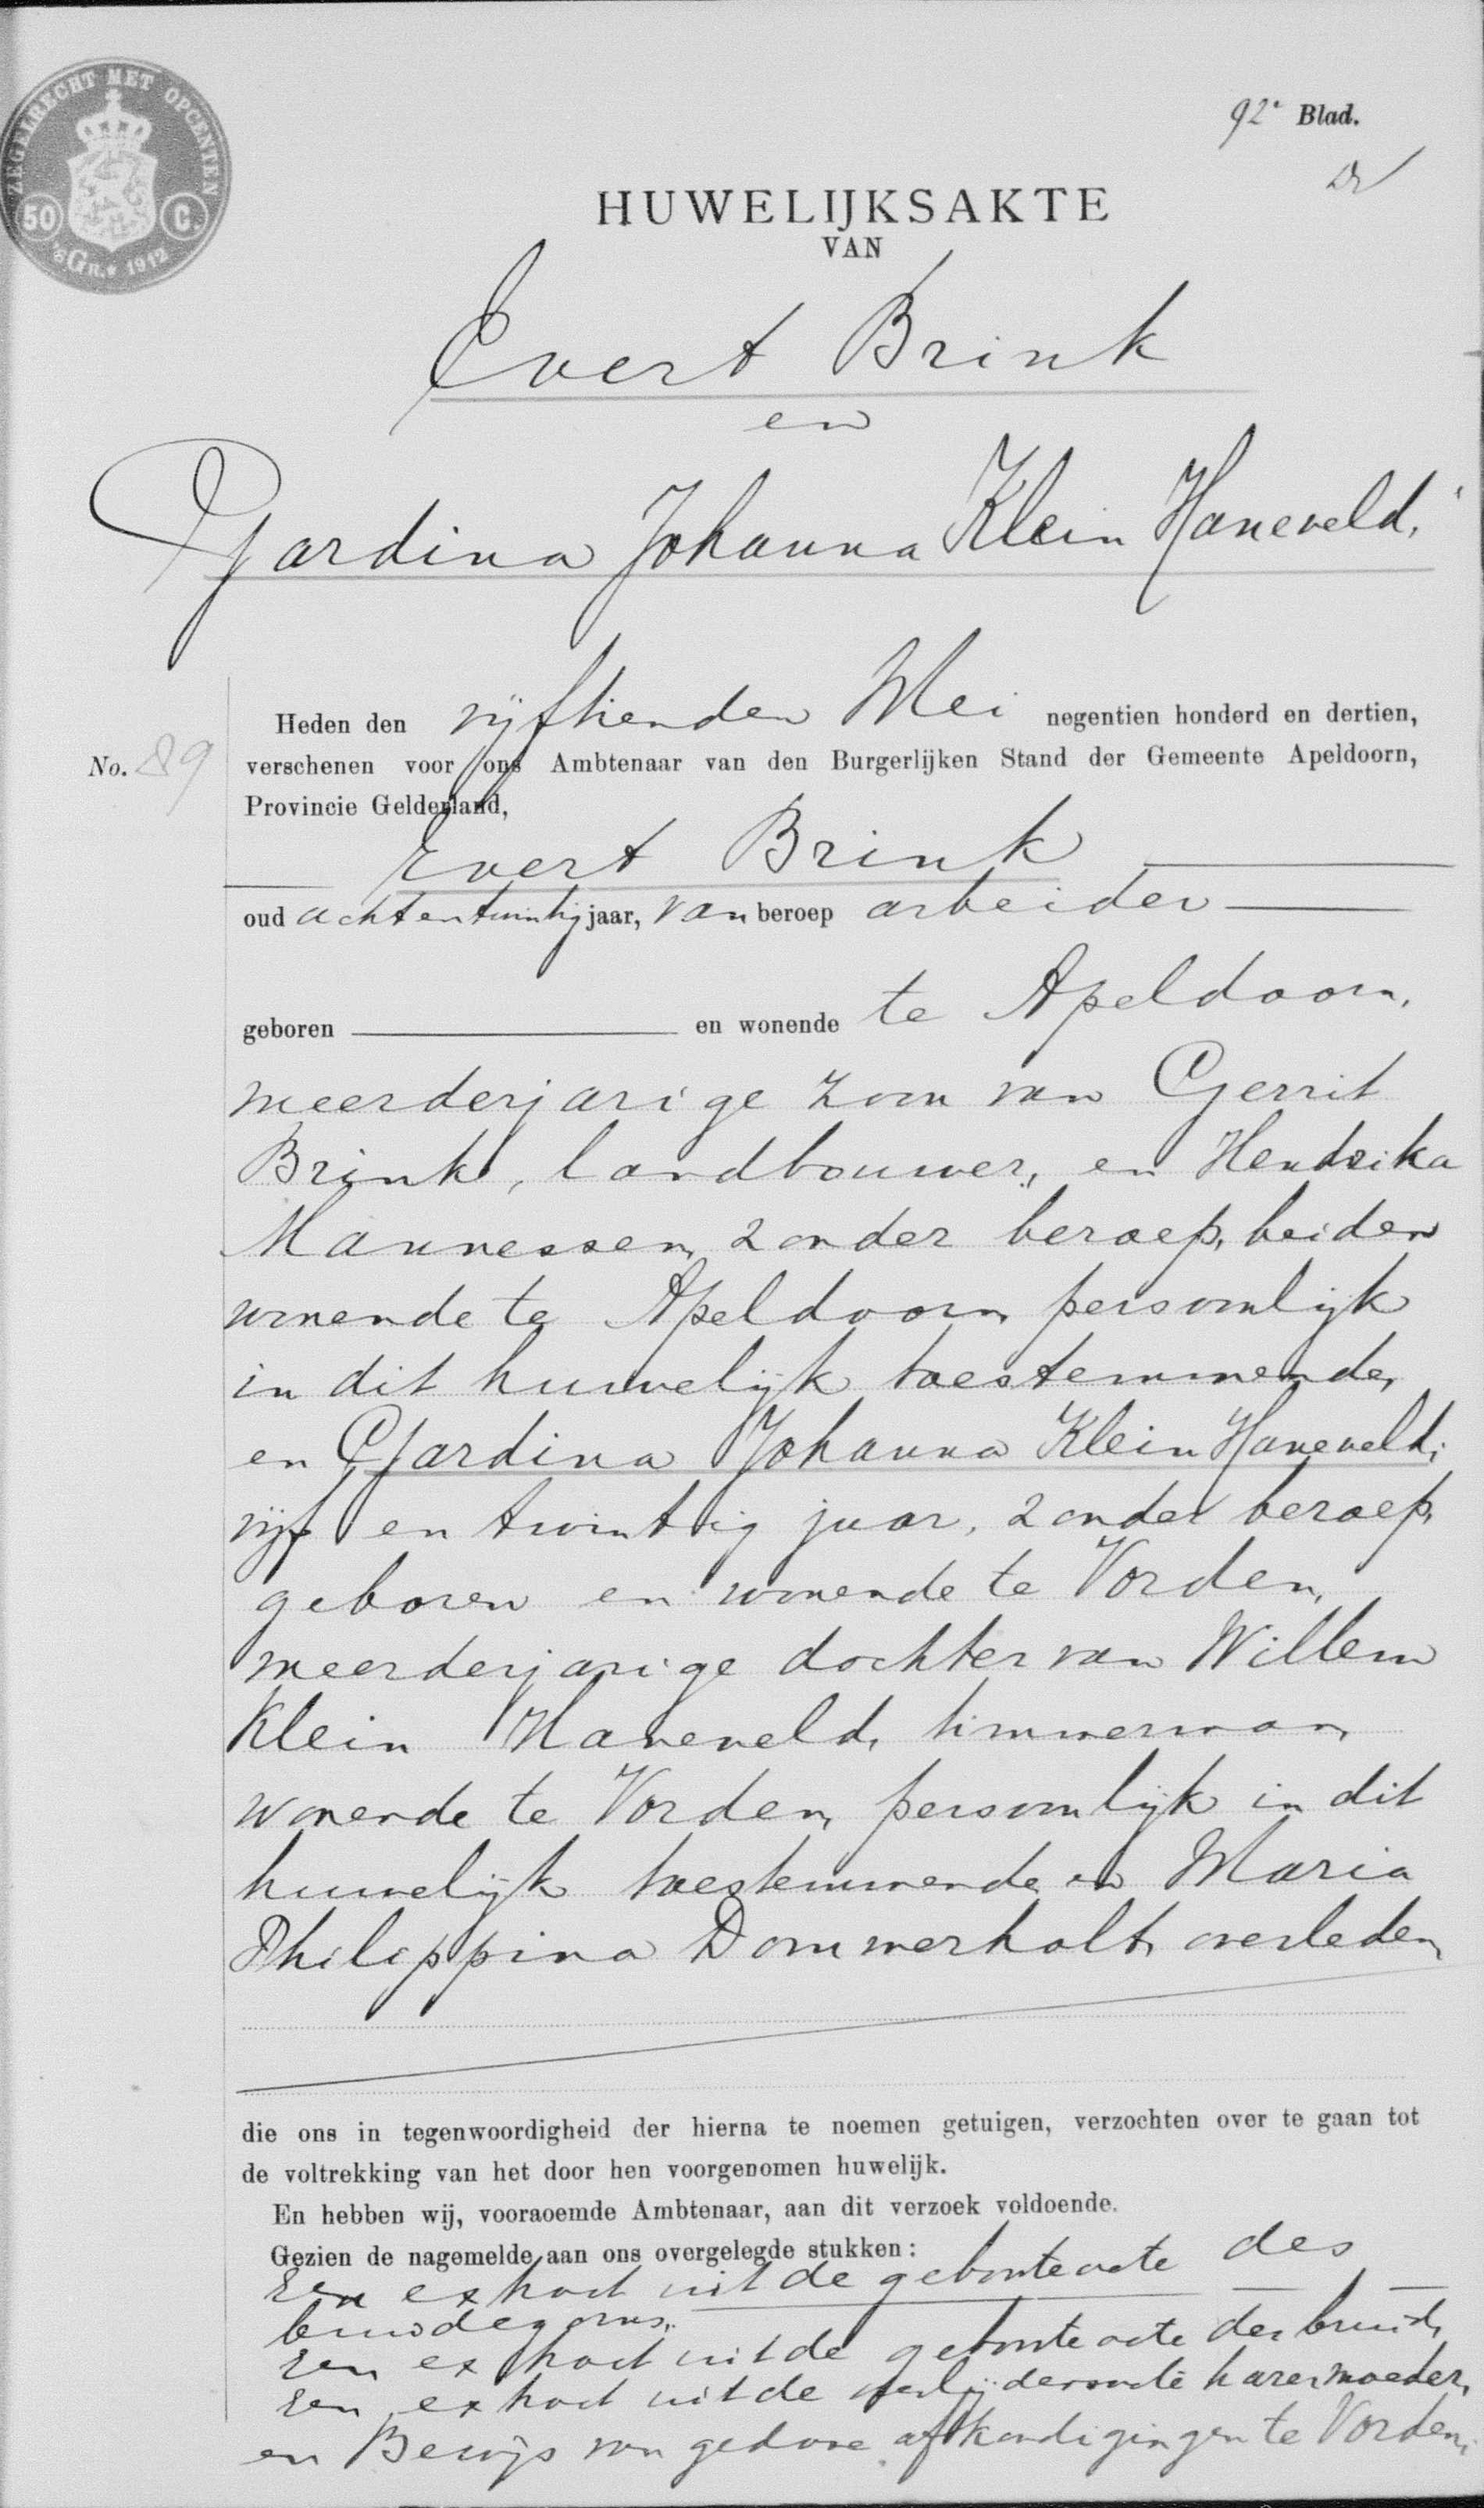 ZEGELRECHT MET OPCENTEN
50 C.
'S GR. 1912
92e Blad.
HUWELIJKSAKTE
VAN
Evert Brink
en
Gjardina Johanna Klein Haneveld,
No. 89
Heden den vijftienden Mei negentien honderd en dertien,
verschenen voor ons Ambtenaar van den Burgerlijken Stand der Gemeente Apeldoorn,
Provincie Gelderland,
Evert Brink
oud achtentwintig jaar, van beroep arbeider
geboren en wonende te Apeldoorn,
meerderjarige zoon van Gerrit
Brink, landbouwer, en Hendrika
Mannessen, zonder beroep, beiden
wonende te Apeldoorn persoonlijk
in dit huwelijk toestemmende,
en Gjardina Johanna Klein Haneveld,
vijf en twintig jaar, zonder beroep,
geboren en wonende te Vorden,
meerderjarige dochter van Willem
Klein Haneveld, timmerman,
wonende te Vorden, persoonlijk in dit
huwelijk toestemmende en Maria
Philippina Dommerholt, overleden,
die ons in tegenwoordigheid der hierna te noemen getuigen, verzochten over te gaan tot
de voltrekking van het door hen voorgenomen huwelijk.
En hebben wij, vooraoemde Ambtenaar, aan dit verzoek voldoende.
Gezien de nagemelde aan ons overgelegde stukken:
Een extract uit de geboorteacte des
bruidegoms,
Een extract uit de geboorteacte der bruid,
Een extract uit de overlijdensacte harer moeder,
en Bewijs van gedane afkondigingen te Vorden,